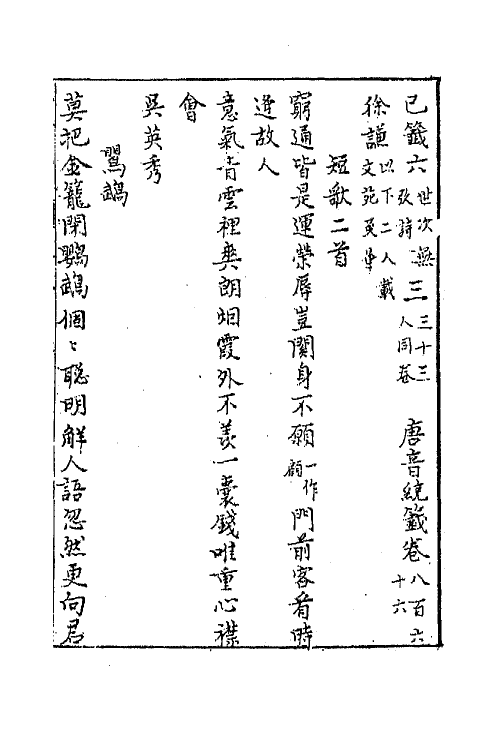 己籤六世次無攷詩三三十三人同卷 唐音統籤卷八百六十六
徐謙以下二人載文苑英華
短歌二首
窮通皆是運榮辱豈關身不願一作顧門前客看時
逢故人
意氣青雲裡爽朗烟霞外不羨一囊錢唯重心襟
會
吳英秀
鸎鵡
莫把金籠閉鸚鵡個〻聰明解人語忽然更向君